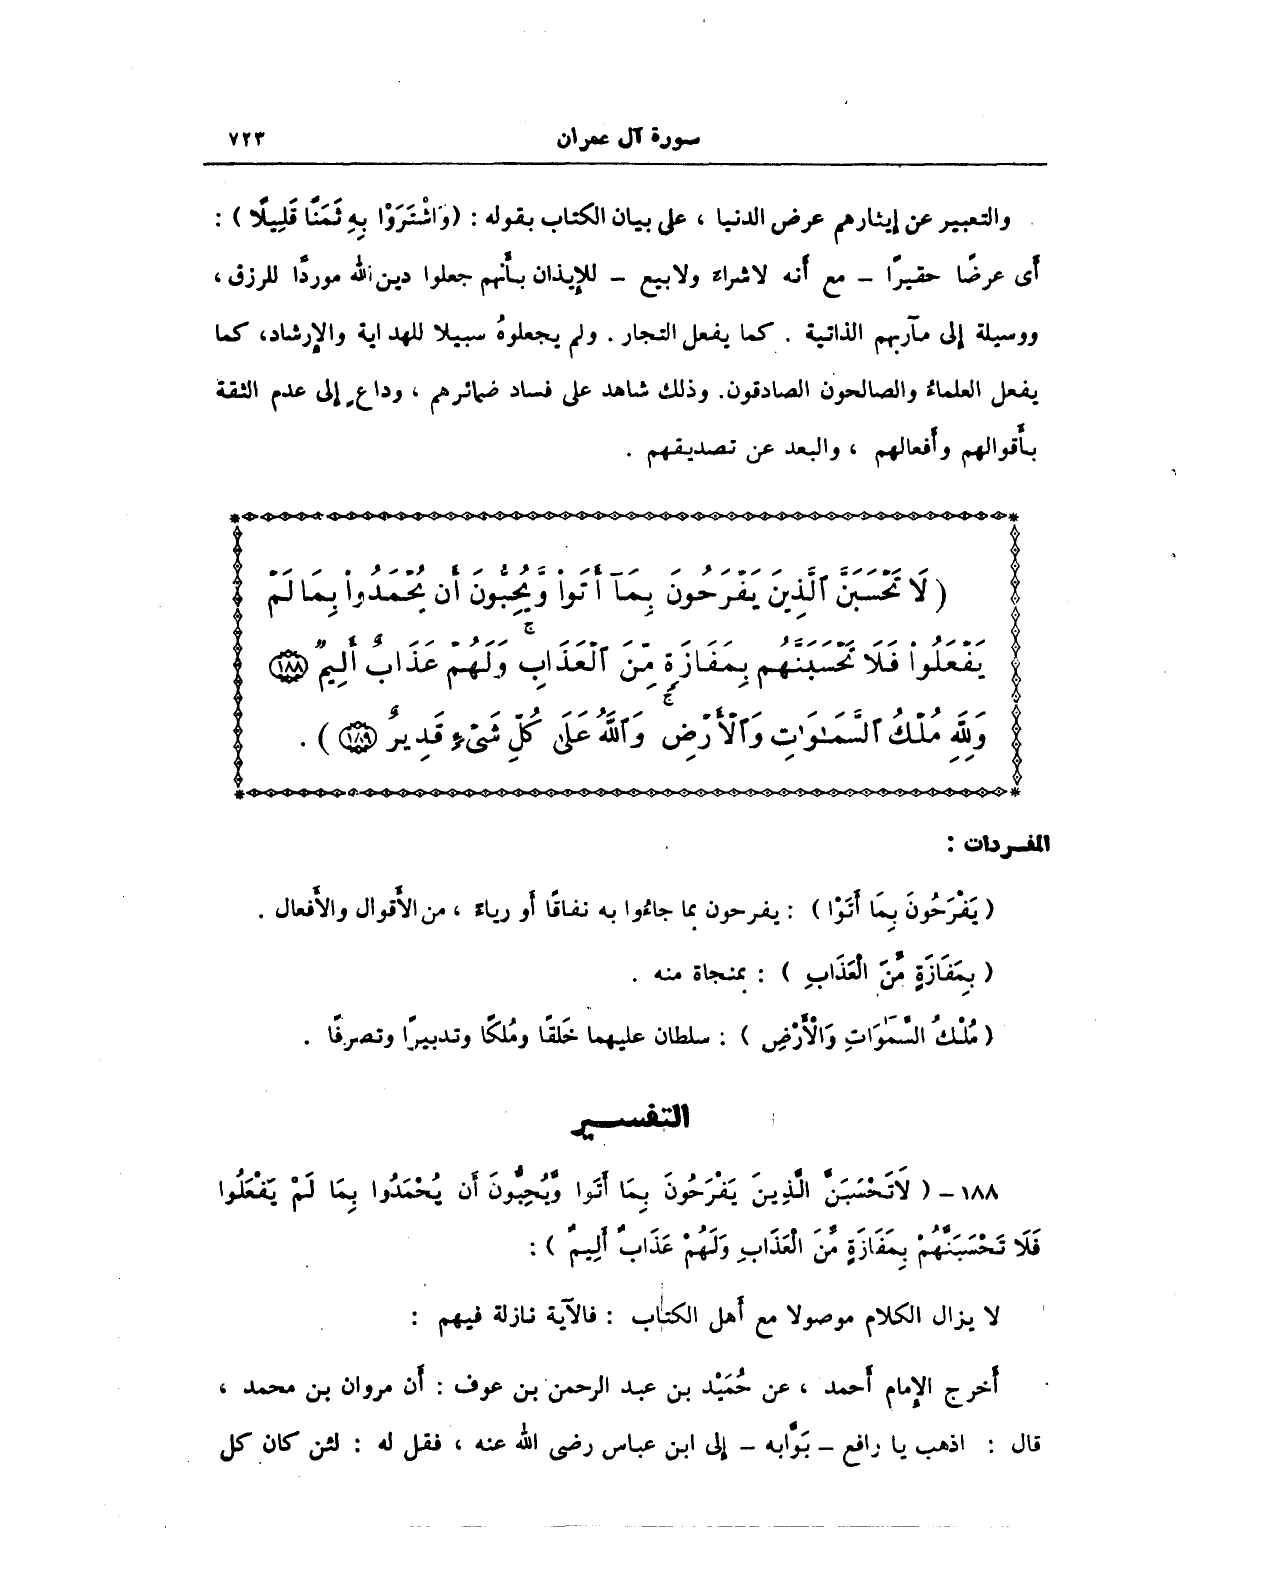 سورة آل عمران ٧٢٣
والتعبير عن إيثارهم عرض الدنيا ، على بيان الكتاب بقوله : (وَاشْتَرَوْا بِهِ ثَمَنًا قَلِيلًا ) :
أى عرضًا حقيرًا – مع أنه لاشراءَ ولابيع – للإيذان بأنهم جعلوا دين الله موردًا للرزق ،
ووسيلة إلى مآربهم الذاتية . كما يفعل التجار . ولم يجعلوهُ سبيلا للهداية والإرشاد، كما
يفعل العلماءُ والصالحون الصادقون. وذلك شاهد على فساد ضمائرهم ، وداعٍ إلى عدم الثقة
بأقوالهم وأفعالهم ، والبعد عن تصديقهم .
( لَا تَحْسَبَنَّ ٱلَّذِينَ يَفْرَحُونَ بِمَآ أَتَوا۟ وَّيُحِبُّونَ أَن يُحْمَدُوا۟ بِمَا لَمْ
يَفْعَلُوا۟ فَلَا تَحْسَبَنَّهُم بِمَفَازَةٍ مِّنَ ٱلْعَذَابِ ۚ وَلَهُمْ عَذَابٌ أَلِيمٌ ﴿١٨٨﴾
وَلِلَّهِ مُلْكُ ٱلسَّمَـٰوَٰتِ وَٱلْأَرْضِ ۚ وَٱللَّهُ عَلَىٰ كُلِّ شَىْءٍ قَدِيرٌ ﴿١٨٩﴾ ) .
المفـردات :
( يَفْرَحُونَ بِمَا أَتَوْا ) : يفرحون بما جاءُوا به نفاقًا أو رياءً ، من الأقوال والأفعال .
( بِمَفَازَةٍ مِّنَ الْعَذَابِ ) : بمنجاة منه .
( مُلْكُ السَّمٰوَاتِ وَالْأَرْضِ ) : سلطان عليهما خَلقًا ومُلكًا وتدبيرًا وتصرفًا .
التفسـير
١٨٨ – ( لَاتَحْسَبَنَّ الَّذِينَ يَفْرَحُونَ بِمَا أَتَوا وَّيُحِبُّونَ أَن يُحْمَدُوا بِمَا لَمْ يَفْعَلُوا
فَلَا تَحْسَبَنَّهُمْ بِمَفَازَةٍ مِّنَ الْعَذَابِ وَلَهُمْ عَذَابٌ أَلِيمٌ ) :
لا يزال الكلام موصولا مع أهل الكتاب : فالآية نازلة فيهم :
أخرج الإمام أحمد ، عن حُمَيْد بن عبد الرحمن بن عوف : أن مروان بن محمد ،
قال : اذهب يا رافع – بَوَّابه – إلى ابن عباس رضى الله عنه ، فقل له : لئن كان كل